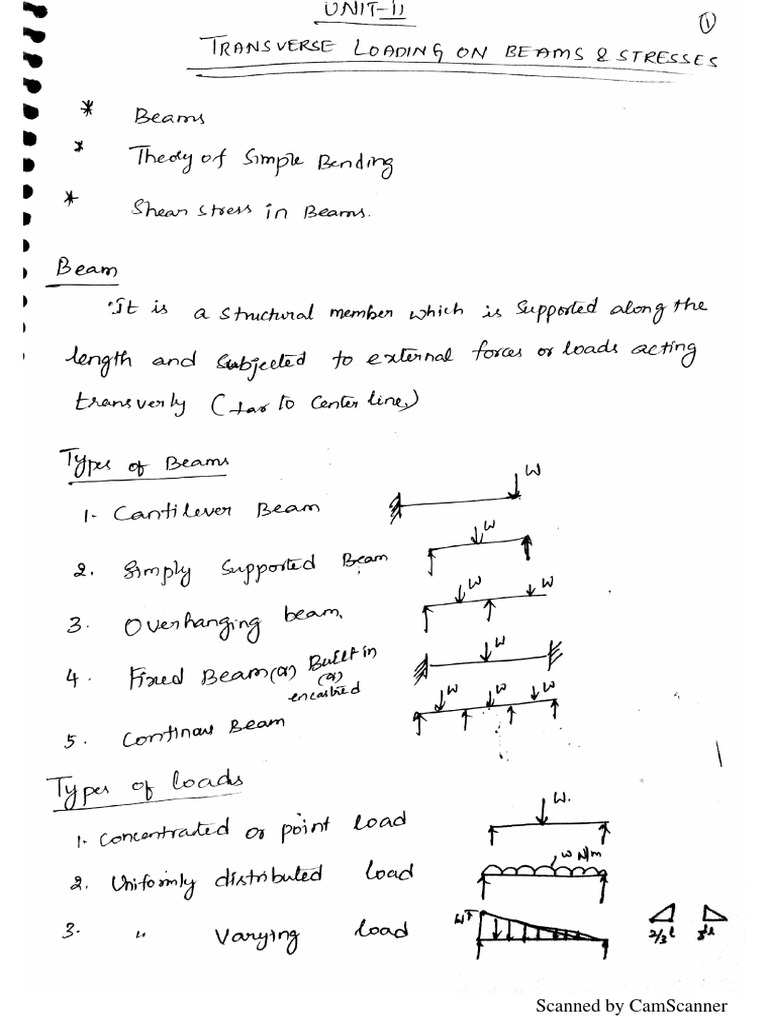 UNIT-II
①
TRANSVERSE LOADING ON BEAMS & STRESSES
* Beams
* Theory of Simple Bending
* Shear stress in Beams.
Beam
It is a structural member which is supported along the
length and subjected to external forces or loads acting
transverly ( to center line)
Types of Beams
1- Cantilever Beam
W
2. Simply supported Beam
W
3. Overhanging beam.
W W
4. Fixed Beam (or) Built in
(or)
encastred
W
5. Continous Beam
W W W
Types of loads
1- Concentrated or point load
W.
2. Uniformly distributed load
w N/m
3. " Varying load
W
2/3 l